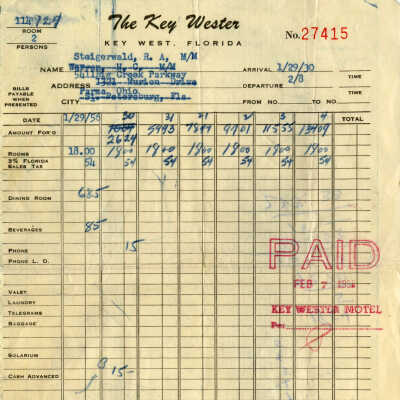 114/129
ROOM
2
PERSONS
The Key Wester
KEY WEST, FLORIDA
No. 27415
BILLS PAYABLE WHEN PRESENTED
Steigerwald, R. A, M/M
NAME Warren, H. C, M/M
ARRIVAL 1/29/30 TIME
ADDRESS
Creek Parkway
Parma, Ohio
DEPARTURE 2/8 TIME
CITY St. Petersburg, Fla.
FROM NO. TO NO.
DATE 1/29/56 30 31 1 2 3 4 TOTAL
AMOUNT FOR'D 5793 11555 13409
2624
ROOMS 18.00 1800 1800 1800 1800 1800 1800
3% FLORIDA SALES TAX 54 54 54 54 54 54 54
DINING ROOM 685
BEVERAGES 85
PHONE 15
PHONE L. D.
PAID
FEB 7
KEY WESTER MOTEL
Per
VALET
LAUNDRY
TELEGRAMS
BAGGAGE
SOLARIUM
CASH ADVANCED 15-